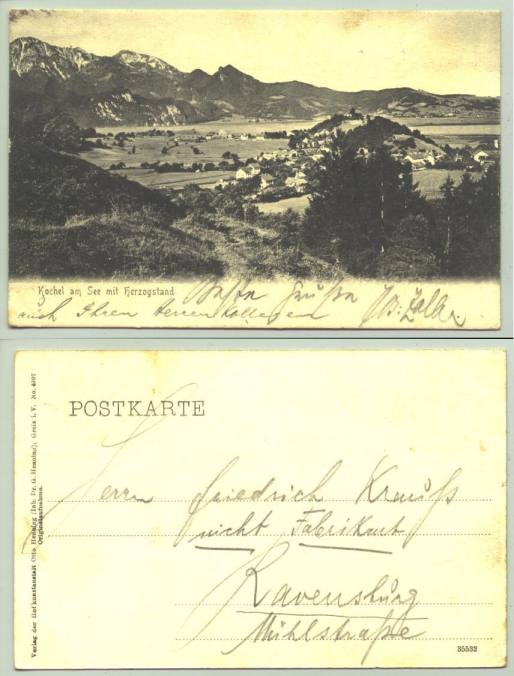 Kochel am See mit Herzogstand
Beste Grüße
auch Ihren Herren Kollegen
POSTKARTE
Herrn Friedrich Krauß
nicht Fabrikant
Ravensburg
Mühlstraße
35532
Verlag der Hofkunstanstalt Otto Henning (Inh. Dr. G. Henning), Greiz i. V. No.
Originalaufnahme.